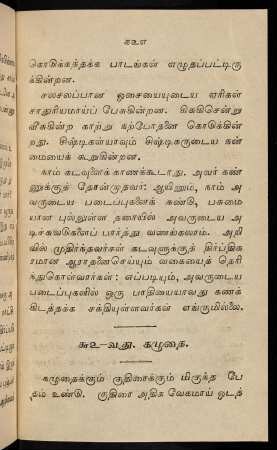 கஉஎ
கொடுக்கத்தக்க பாடங்கள் எழுதப்பட்டிரு
க்கின்றன.
சலசலப்பான ஓசையையுடைய ஏரிகள்
சாதுரியமாய்ப் பேசுகின்றன. கிசுகிசென்று
வீசுகின்ற காற்று கற்போதனை கொடுக்கின்
றது. சிஷ்டிகள்யாவும் சிஷ்டிகருடைய கன்
மையைக் கூறுகின்றன.
நாம் கடவுளைக் காணக்கூடாது. அவர் கண்
ணுக்குத் தோன்முதவர்: ஆயினும், நாம் அ
வருடைய படைப்புகளைக் கண்டு, பசுமை
யான புல்லுள்ள தரையில் அவருடைய அ
டிச்சுவடுகளைப் பார்த்து வணங்கலாம். அறி
வில் முதிர்ந்தவர்கள் கடவுளுக்குத் திர்ப்திக
ரமான ஆராதனைசெய்யும் வகையைத் தெரி
ந்துகொள்வார்கள்: எப்படியும், அவருடைய
படைப்புகளில் ஒரு பாதியையாவது கணக்
கிடத்தக்க சக்தியுள்ளவர்கள் எங்குமில்லை.
சுஉ-வது. கழுதை.
கழுதைக்கும் குதிரைக்கும் மிகுந்த பே
தம் உண்டு. குதிரை அதிக வேகமாய் ஓடத்